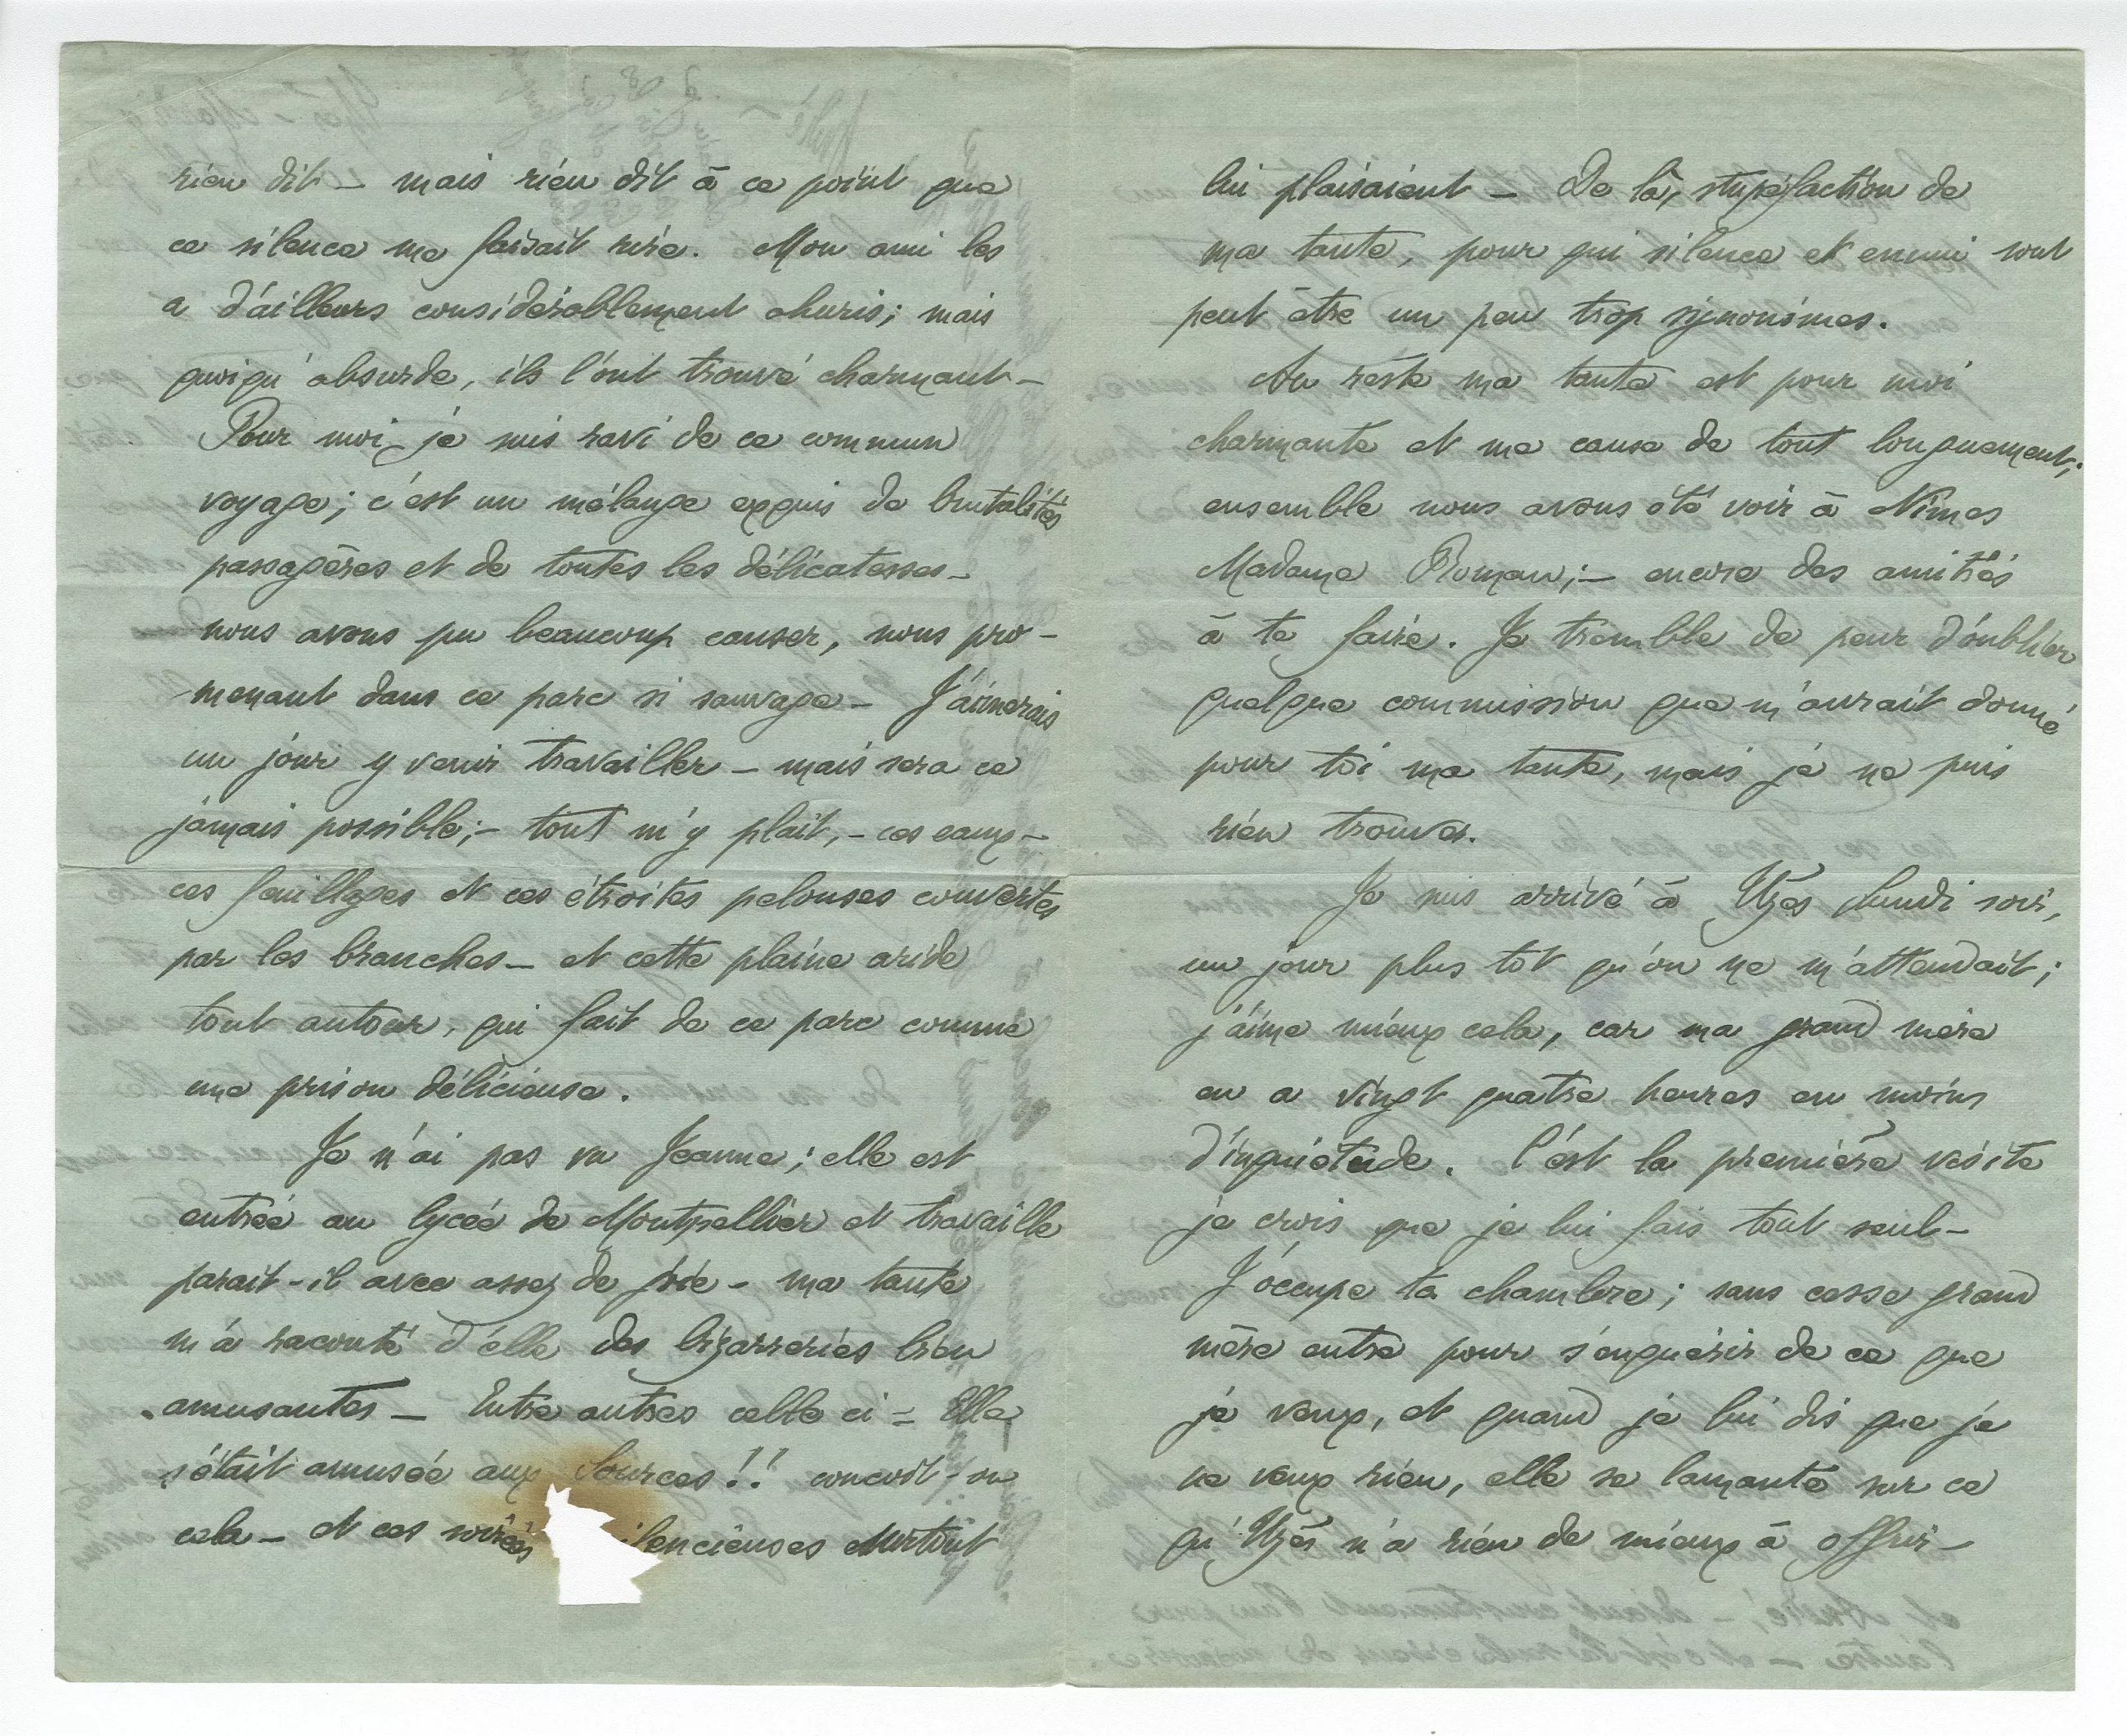 rien dit – mais rien dit à ce point que
ce silence me faisait rire. Mon ami les
a d'ailleurs considérablement ahuris; mais
quoiqu'absurde, ils l'ont trouvé charmant –
Pour moi, je suis ravi de ce commun
voyage; c'est un mélange exquis de brutalités
passagères et de toutes les délicatesses –
nous avons pu beaucoup causer, nous pro-
menant dans ce parc si sauvage – J'aimerais
un jour y venir travailler – mais sera ce
jamais possible; – tout m'y plait, – ces eaux –
ces feuillages et ces étroites pelouses couvertes
par les branches – et cette plaine aride
tout autour, qui fait de ce parc comme
une prison délicieuse.
Je n'ai pas vu Jeanne; elle est
entrée au lycée de Montpellier et travaille
parait-il avec assez de joie – ma tante
m'a raconté d'elle des bizarreries bien
amusantes – Entre autres celle ci = Elle
s'était amusée aux Sources!! conçoit-on
cela – et ces soirées silencieuses surtout
lui plaisaient – De là, stupéfaction de
ma tante, pour qui silence et ennui sont
peut être un peu trop synonimes.
Au reste ma tante est pour moi
charmante et me cause de tout longuement;
ensemble nous avons été voir à Nîmes
Madame Roman; – encore des amitiés
à te faire. Je tremble de peur d'oublier
quelque commission que m'aurait donné
pour toi ma tante, mais je ne puis
rien trouver.
Je suis arrivé à Uzès lundi soir,
un jour plus tôt qu'on ne m'attendait;
j'aime mieux cela, car ma grand mère
en a vingt quatre heures en moins
d'inquiétude. C'est la première visite
je crois que je lui fais tout seul –
J'occupe ta chambre; sans cesse grand
mère entre pour s'enquérir de ce que
je veux, et quand je lui dis que je
ne veux rien, elle se lamente sur ce
qu'Uzès n'a rien de mieux à offrir –